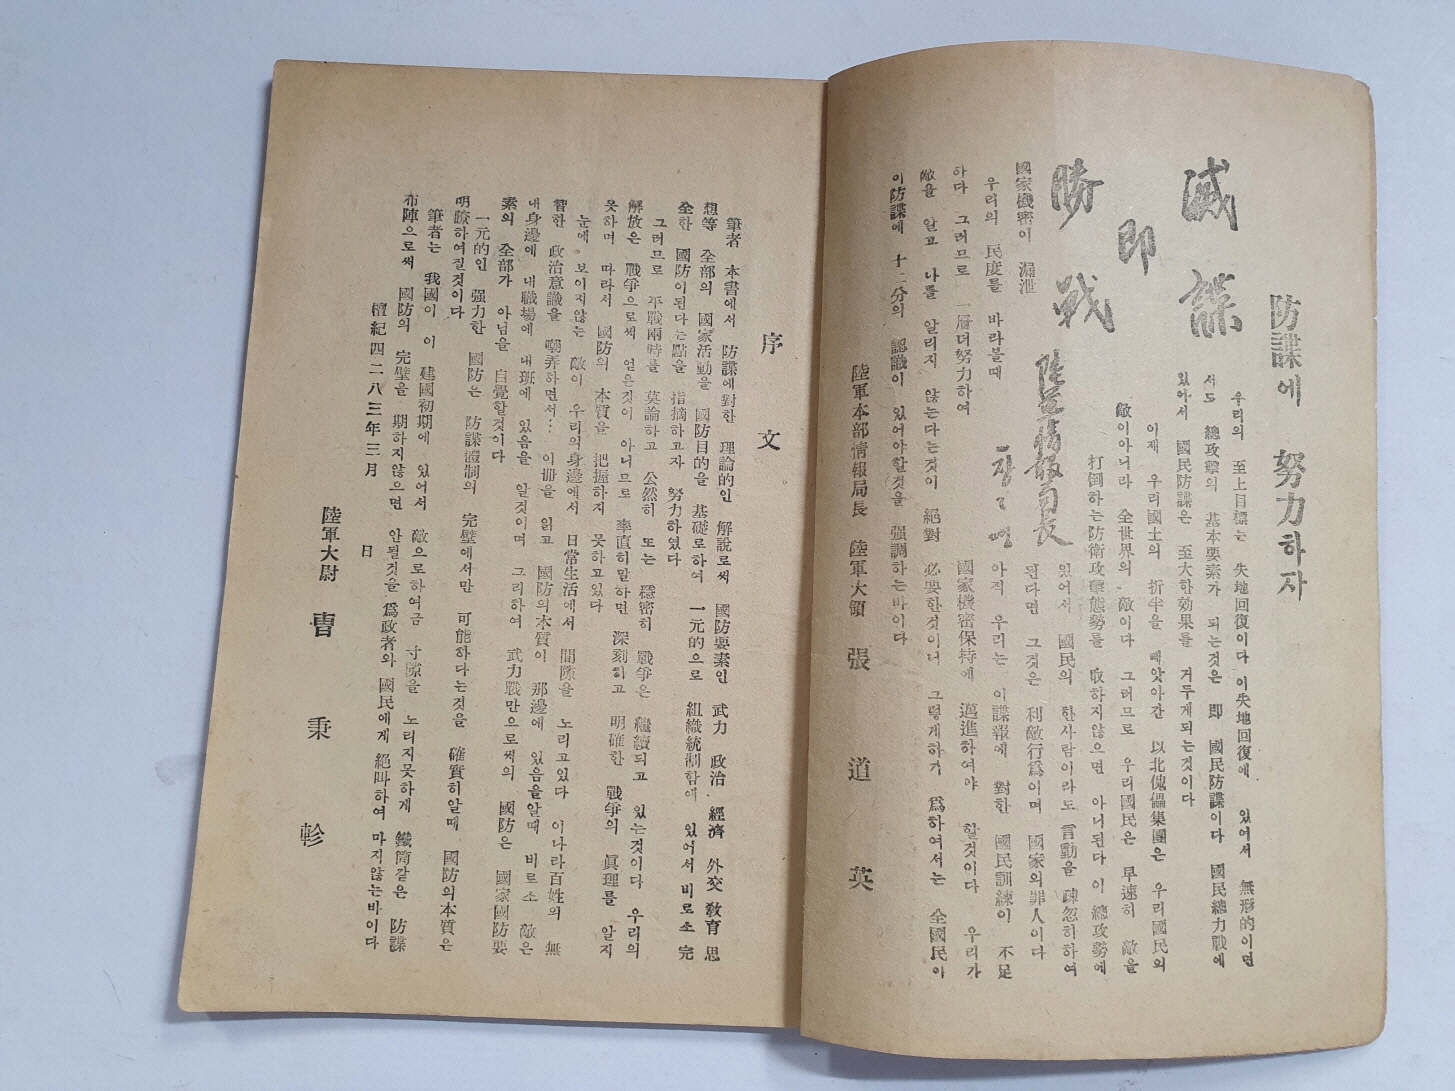 防諜에 努力하자
우리의 至上目標는 失地回復이다 이失地回復에 있어서 無形的이면
서도 總攻擊의 基本要素가 되는것은 即 國民防諜이다 國民總力戰에
있어서 國民防諜은 至大한効果를 거두게되는것이다
이제 우리國土의 折半을 빼앗아간 以北傀儡集團은 우리國民의
敵이아니라 全世界의 敵이다 그러므로 우리國民은 早速히 敵을
打倒하는防衛攻擊態勢를 取하지않으면 아니된다 이 總攻勢에
있어서 國民의 한사람이라도 言動을 疎忽히하여
된다면 그것은 利敵行爲이며 國家의罪人이다
滅諜
即
勝戰
陸軍情報局長
아직 우리는 이諜報에 對한 國民訓練이 不足
國家機密이 漏泄
우리의 民度를 바라볼때 國家機密保持에 邁進하여야 할것이다 우리가
하다 그러므로 一層더努力하여
敵을 알고 나를 알리지 않는다는것이 絕對 必要한것이니 그렇게하기 爲하여서는 全國民이
이防諜에 十二分의 認識이 있어야할것을 强調하는바이다
陸軍本部情報局長 陸軍大領 張道英
序文
筆者 本書에서 防諜에對한 理論的인 解說로써 國防要素인 武力 政治 經濟 外交 敎育 思
想等 全部의 國家活動을 國防目的을 基礎로하여 一元的으로 組織統制함에 있어서비로소 完
全한 國防이된다는點을 指摘하고자 努力하였다
그러므로 平戰兩時를 莫論하고 公然히 또는 穩密히 戰爭은 繼續되고 있는것이다 우리의
解放은 戰爭으로써 얻은것이 아니므로 率直히말하면 深刻하고 明確한 戰爭의 眞理를 알지
못하며 따라서 國防의 本質을 把握하지 못하고있다
눈에 보이지않는 敵이 우리의身邊에서 日常生活에서 間隙을 노리고있다 이나라百姓의 無
智한 政治意識을 嘲弄하면서… 이册을 읽고 國防의本質이 那邊에 있음을알때 비로소 敵은
내身邊에 내職場에 내班에 있음을 알것이며 그리하여 武力戰만으로써의 國防은 國家國防要
素의 全部가 아님을 自覺할것이다
一元的인 强力한 國防은 防諜體制의 完璧에서만 可能하다는것을 確實히알때 國防의本質은
明瞭하여질것이다
筆者는 我國이 이 建國初期에 있어서 敵으로하여금 寸隙을 노리지못하게 鐵筒같은 防諜
布陣으로써 國防의 完璧을 期하지않으면 안될것을 爲政者와 國民에게 絕叫하여 마지않는바이다
檀紀四二八三年三月 日
陸軍大尉 曺秉軫